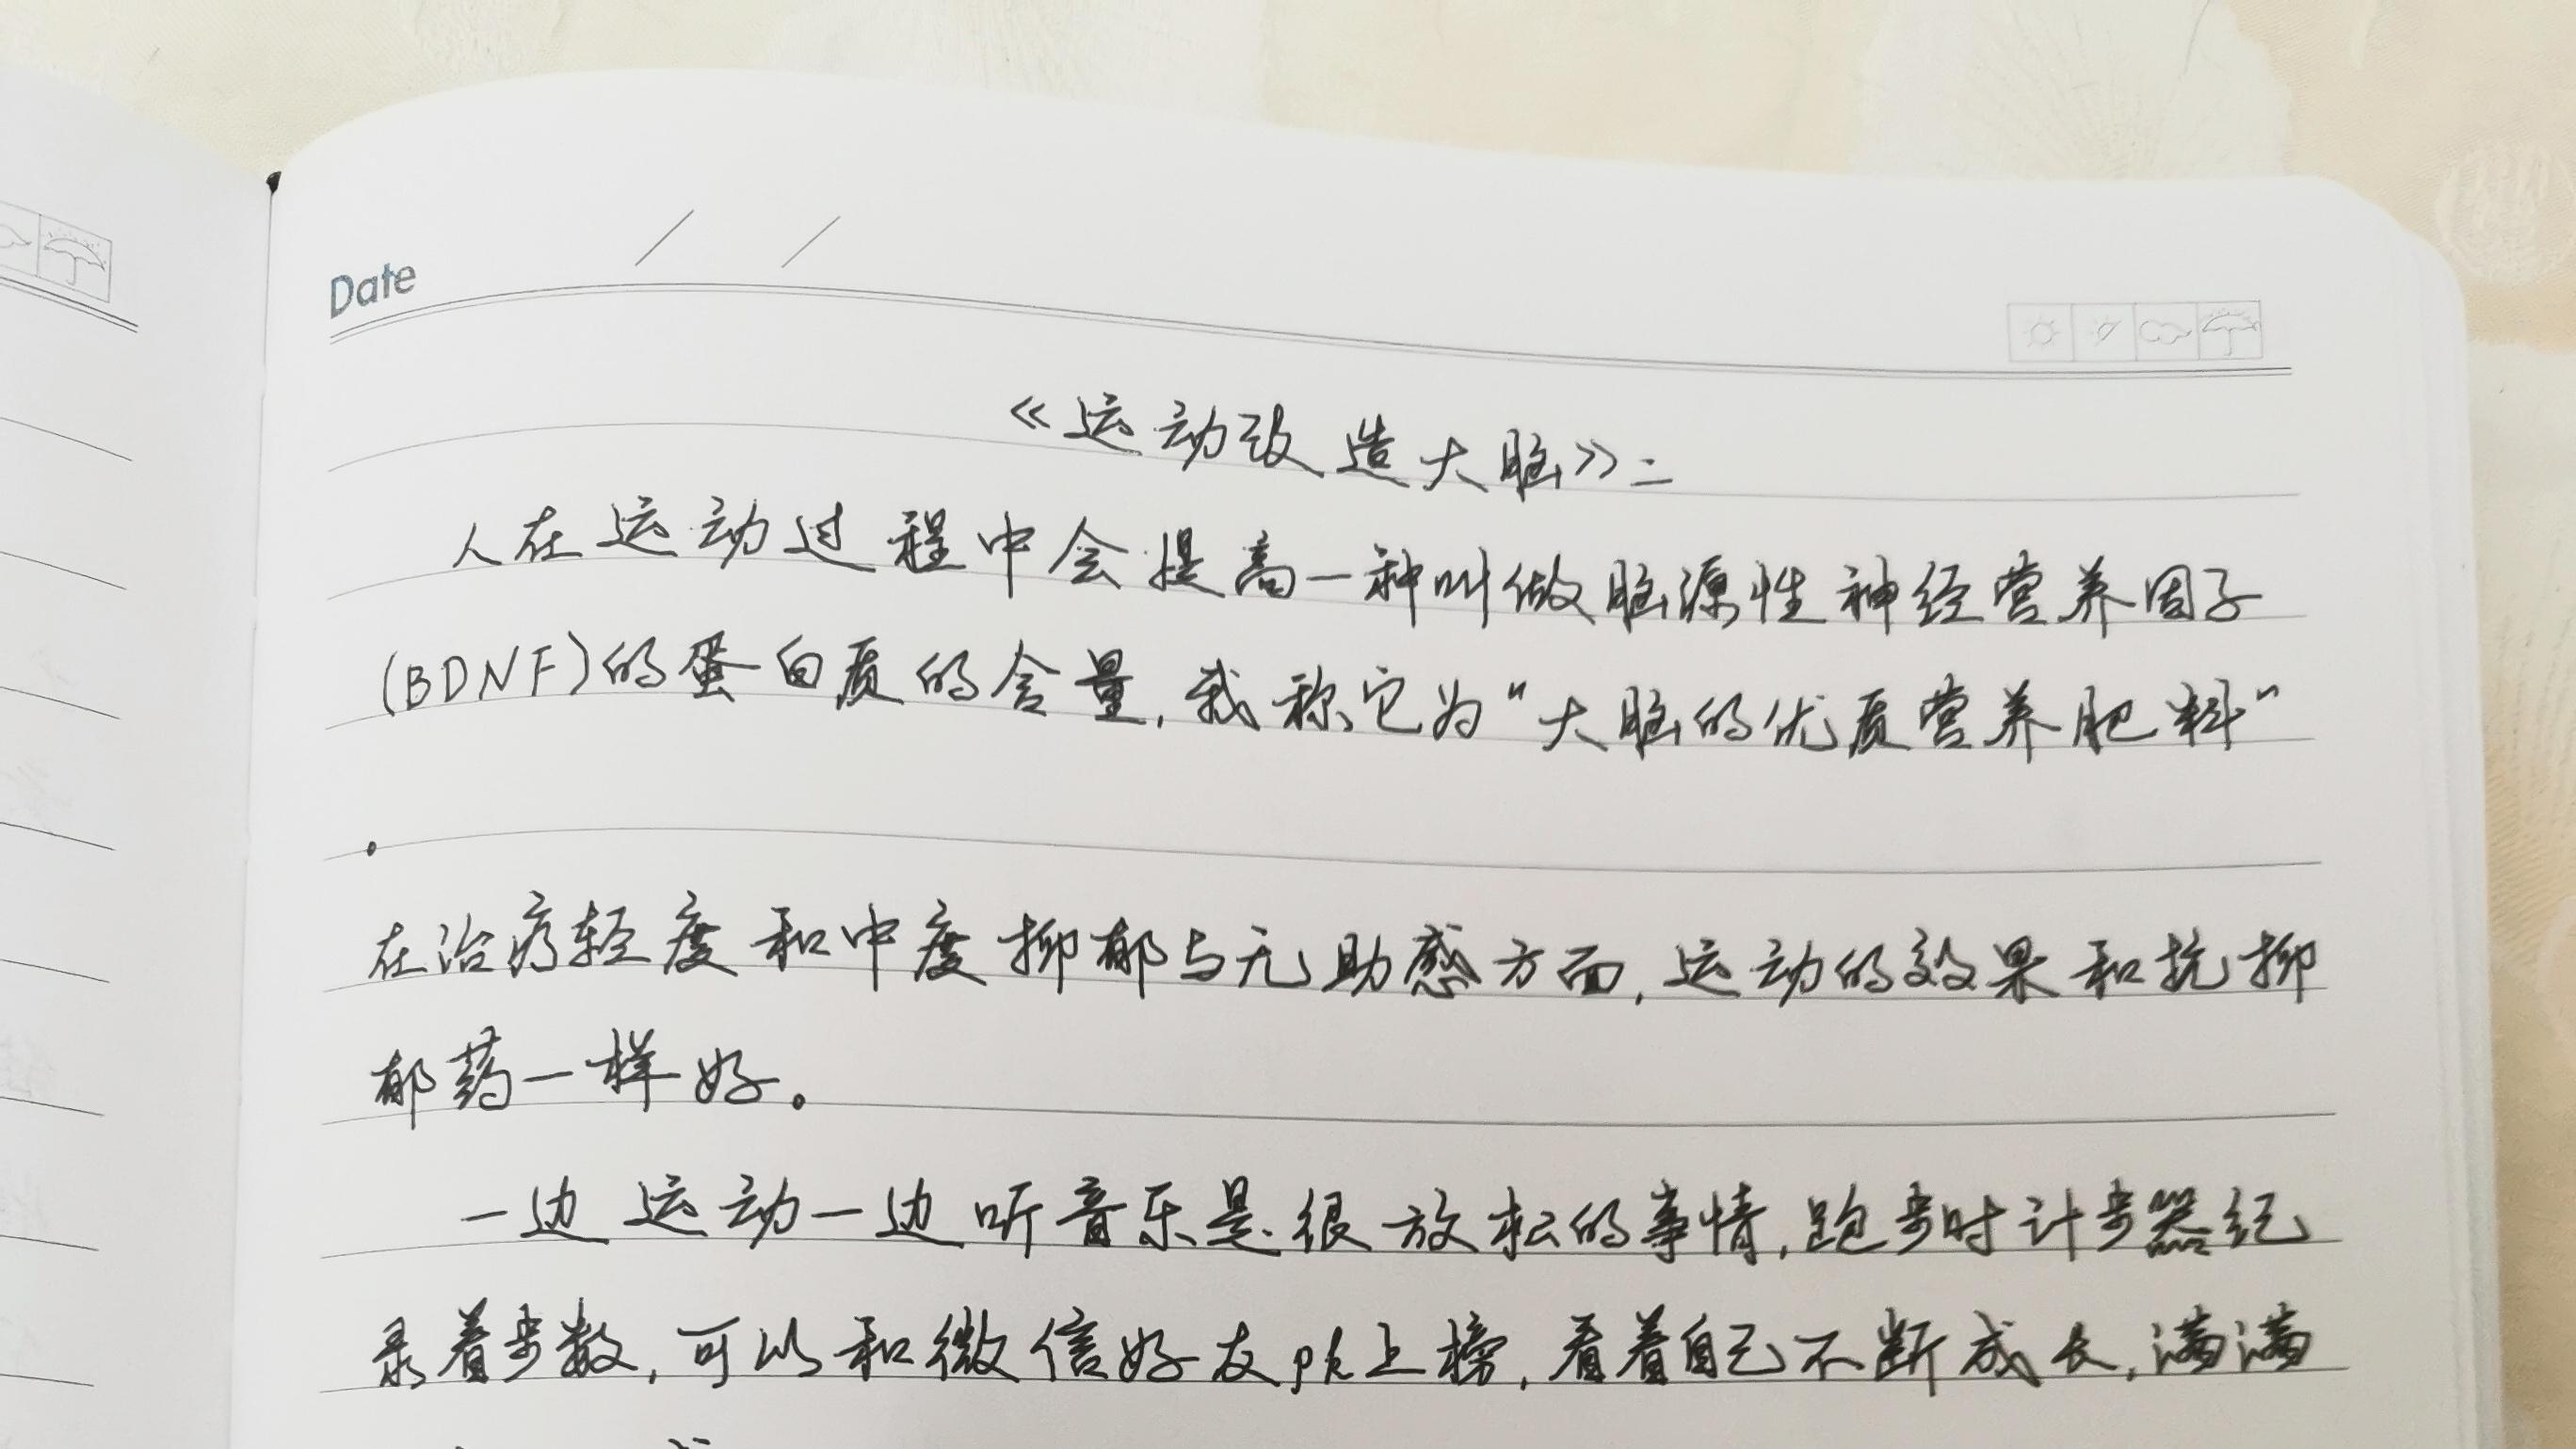 Date / /
《运动改造大脑》二
人在运动过程中会提高一种叫做脑源性神经营养因子
(BDNF)的蛋白质的含量,我称它为“大脑的优质营养肥料”
.
在治疗轻度和中度抑郁与无助感方面,运动的效果和抗抑
郁药一样好。
一边运动一边听音乐是很放松的事情,跑步时计步器纪
录着步数,可以和微信好友pk上榜,看着自己不断成长,满满